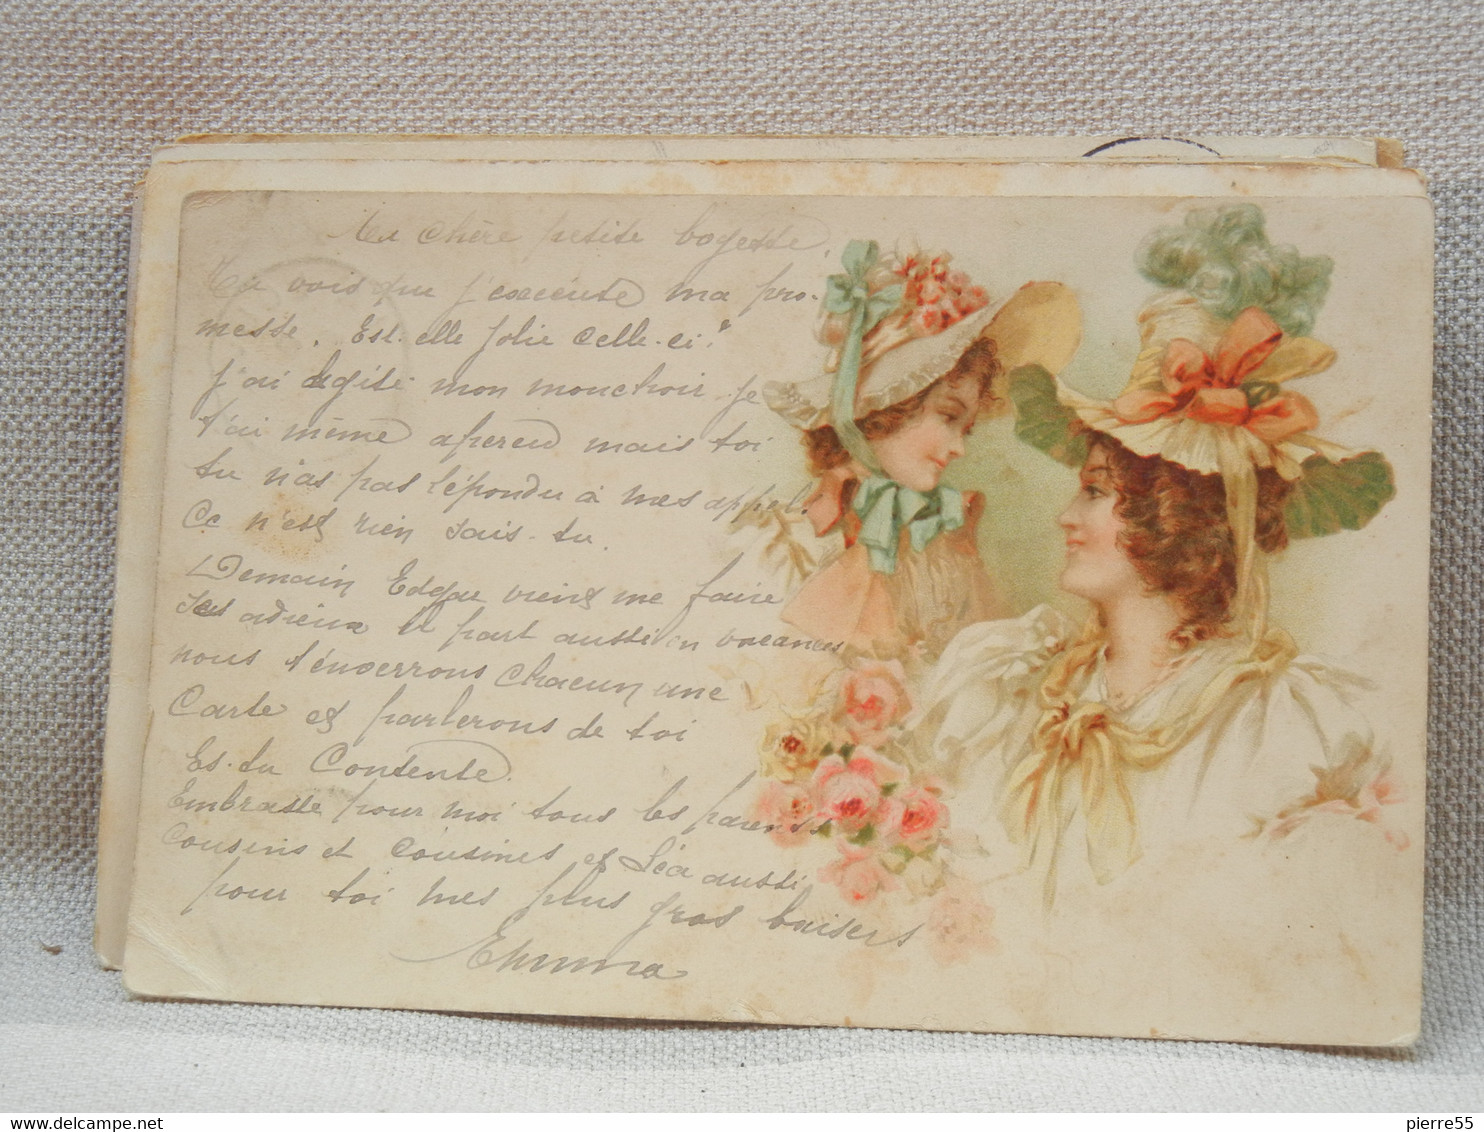 Ma chère petite bogette,
Tu vois que j'exécute ma pro-
messe. Est-elle jolie celle-ci?
J'ai agité mon mouchoir je
t'ai même aperçu mais toi
tu n'as pas répondu à mes appel.
Ce n'est rien sais-tu.
Demain Edgar vient me faire
ses adieux il part aussi en vacances
nous t'enverrons chacun une
Carte et parlerons de toi
Es-tu Contente.
Embrasse pour moi tous les parents
cousins et cousines et Léa aussi
pour toi mes plus gros baisers
Emma
pierre55